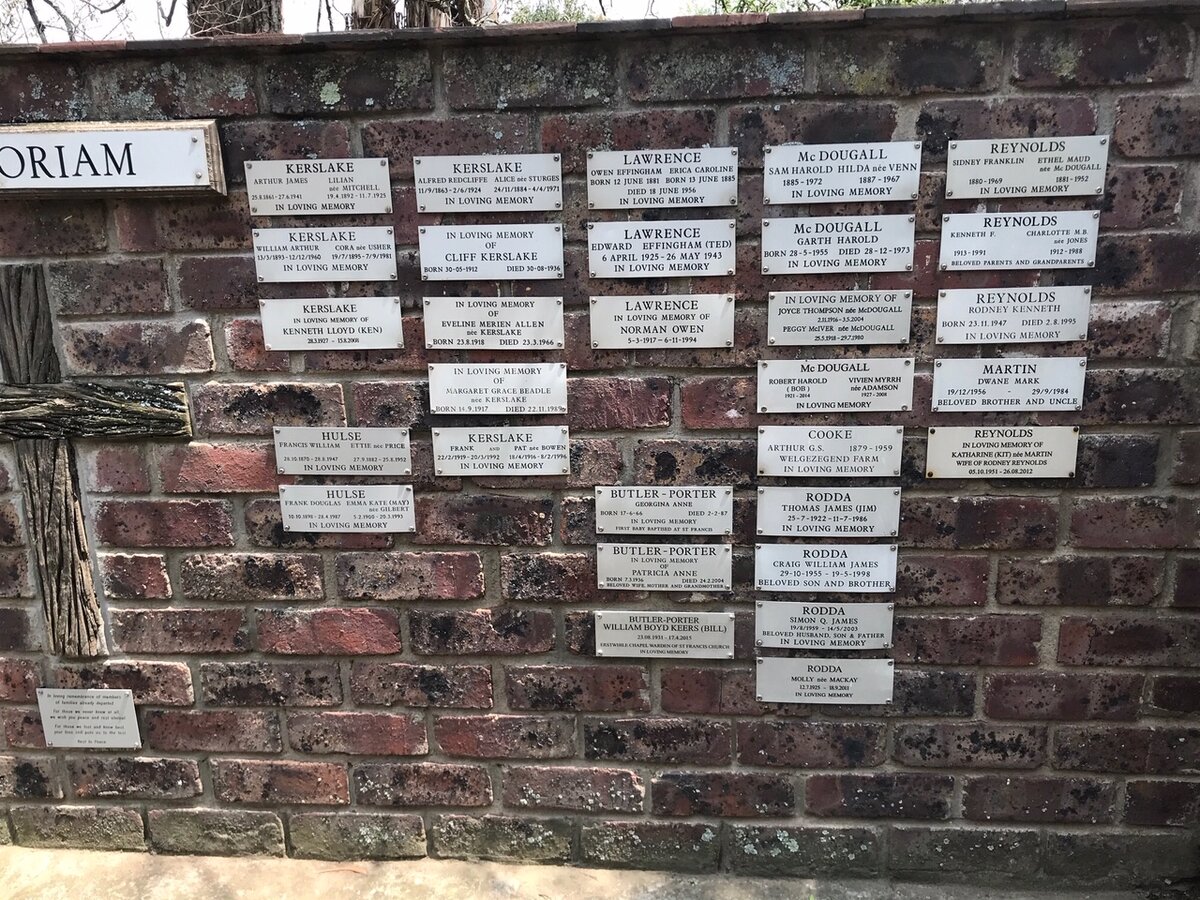 ORIAM
KERSLAKE
ARTHUR JAMES LILIAN
née MITCHELL
25.8.1861-27.6.1941 19.4.1892-11.7.1925
IN LOVING MEMORY
KERSLAKE
WILLIAM ARTHUR CORA née USHER
13/3/1893-12/12/1960 19/7/1895-7/9/1981
IN LOVING MEMORY
KERSLAKE
IN LOVING MEMORY OF
KENNETH LLOYD (KEN)
28.3.1927 - 15.8.2008
HULSE
FRANCIS WILLIAM ETTIE née PRICE
26.10.1870-28.8.1947 27.9.1882-25.8.1952
IN LOVING MEMORY
HULSE
FRANK DOUGLAS EMMA KATE (MAY)
née GILBERT
10.10.1898-28.4.1987 5.2.1900-20.3.1993
IN LOVING MEMORY
KERSLAKE
ALFRED REDCLIFFE ALICE née STURGES
11/9/1863-2/6/1924 24/11/1884-4/4/1971
IN LOVING MEMORY
IN LOVING MEMORY
OF
CLIFF KERSLAKE
BORN 30-05-1912 DIED 30-08-1936
IN LOVING MEMORY
OF
EVELINE MERIEN ALLEN
née KERSLAKE
BORN 23.8.1918 DIED 23.3.1966
IN LOVING MEMORY
OF
MARGARET GRACE BEADLE
née KERSLAKE
BORN 14.9.1917 DIED 22.11.1989
KERSLAKE
FRANK AND PAT née BOWEN
22/2/1919-20/3/1992 18/4/1916-8/2/1996
IN LOVING MEMORY
LAWRENCE
OWEN EFFINGHAM ERICA CAROLINE
BORN 12 JUNE 1881 BORN 13 JUNE 1885
DIED 18 JUNE 1956
IN LOVING MEMORY
LAWRENCE
EDWARD EFFINGHAM (TED)
6 APRIL 1925-26 MAY 1943
IN LOVING MEMORY
LAWRENCE
IN LOVING MEMORY OF
NORMAN OWEN
5-3-1917-6-11-1994
BUTLER-PORTER
GEORGINA ANNE
BORN 17-6-66 DIED 2-2-87
IN LOVING MEMORY
FIRST BABY BAPTISED AT ST FRANCIS
BUTLER-PORTER
IN LOVING MEMORY
OF
PATRICIA ANNE
BORN 7.3.1936 DIED 24.2.2004
BELOVED WIFE, MOTHER AND GRANDMOTHER
BUTLER-PORTER
WILLIAM BOYD KEERS (BILL)
23.08.1931 - 17.4.2015
ERSTWHILE CHAPEL WARDEN OF ST FRANCIS CHURCH
IN LOVING MEMORY
Mc DOUGALL
SAM HAROLD HILDA née VENN
1885-1972 1887-1967
IN LOVING MEMORY
Mc DOUGALL
GARTH HAROLD
BORN 28-5-1955 DIED 28-12-1973
IN LOVING MEMORY
IN LOVING MEMORY OF
JOYCE THOMPSON née McDOUGALL
2.11.1916-3.5.2004
PEGGY McIVER née McDOUGALL
25.5.1918 - 29.7.1980
Mc DOUGALL
ROBERT HAROLD VIVIEN MYRRH
(BOB) née ADAMSON
1921-2014 1927-2008
IN LOVING MEMORY
COOKE
ARTHUR G.S. 1879-1959
WELGEZEGEND FARM
IN LOVING MEMORY
RODDA
THOMAS JAMES (JIM)
25-7-1922-11-7-1986
IN LOVING MEMORY
RODDA
CRAIG WILLIAM JAMES
29-10-1955 - 19-5-1998
BELOVED SON AND BROTHER
RODDA
SIMON Q. JAMES
19/8/1959 - 14/5/2003
BELOVED HUSBAND, SON & FATHER
IN LOVING MEMORY
RODDA
MOLLY née MACKAY
12.7.1925 - 18.9.2011
IN LOVING MEMORY
REYNOLDS
SIDNEY FRANKLIN ETHEL MAUD
née Mc DOUGALL
1880-1969 1881-1952
IN LOVING MEMORY
REYNOLDS
KENNETH F. CHARLOTTE M.B.
née JONES
1913-1991 1912-1988
BELOVED PARENTS AND GRANDPARENTS
REYNOLDS
RODNEY KENNETH
BORN 23.11.1947 DIED 2.8.1995
IN LOVING MEMORY
MARTIN
DWANE MARK
19/12/1956 - 29/9/1984
BELOVED BROTHER AND UNCLE
REYNOLDS
IN LOVING MEMORY OF
KATHARINE (KIT) née MARTIN
WIFE OF RODNEY REYNOLDS
05.10.1951 - 26.08.2012
In loving remembrance of members
of families already departed
For those we never knew at all,
we wish you peace and rest
For those we lost and knew best
your love still
Rest In Peace